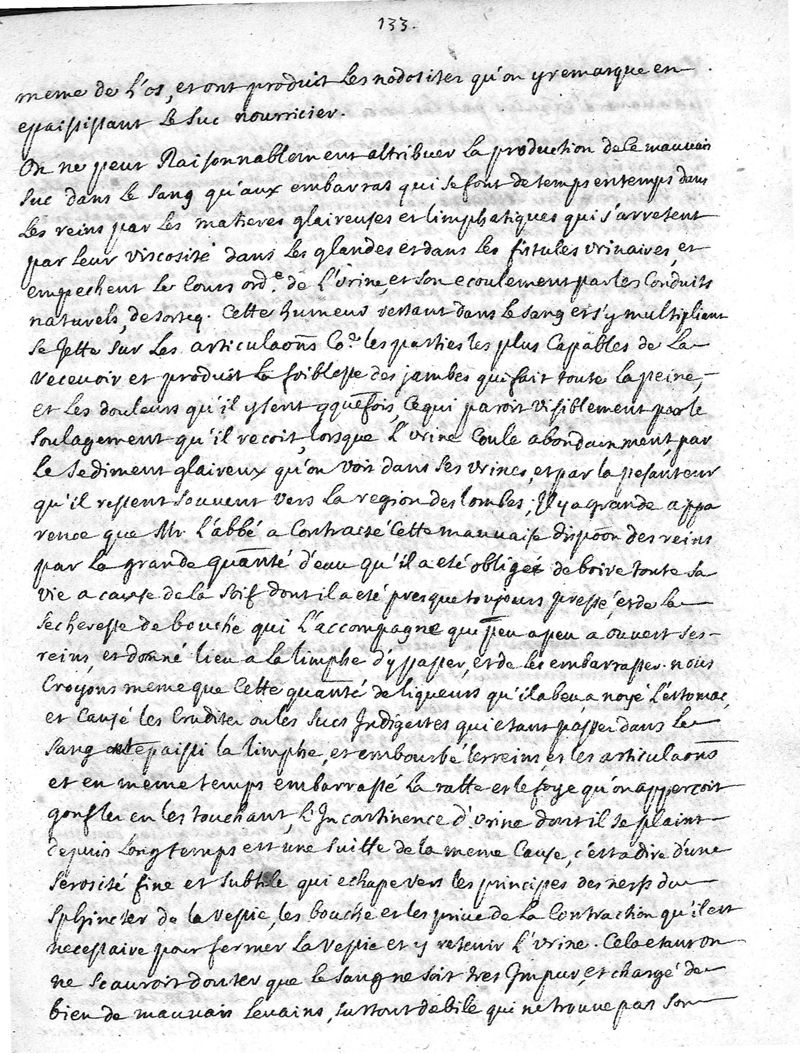 133.
meme de l'os, et ont produit les nodosites qu'on y remarque en
epaississant le suc nourricier.
On ne peut Raisonnablement attribuer la production de ce mauvais
suc dans le sang qu'aux embarras qui se font de temps en temps dans
les reins par les matieres glaireuses et limphatiques qui s'arretent
par leur viscosité dans les glandes et dans les fistules urinaires, et
empechent le cours ord.e de l'urine, et son ecoulement par les conduits
naturels, de sorteq. cette humeur restant dans le sang et s'y multipliant
se jette sur les articulaoñs Co.e les parties les plus capables de la
recevoir et produit la foiblesse des jambes qui fait toute la peine,
et les douleurs qu'il y sent qquefois, ce qui paroit visiblement par le
soulagement qu'il recoit, lorsque l'urine coule abondainment, par
le sediment glaireux qu'on voit dans ses urines, et par la pesanteur
qu'il ressent souvent vers la region des lombes; Il y a grande appa
rence que Mr l'abbé a contracté cette mauvaise dispõon des reins
par la grande quañté d'eau qu'il a eté obligé de boire toute sa
vie a cause de la soif dont il a eté presque toujours pressé, et de la
secheresse de bouche qui l'accompagne qui peu a peu a ouvert ses
reins, et donné lieu a la limphe d'y passer, et de les embarrasser. nous
croyons meme que cette quañté de liqueurs qu'il a beu, a noyé l'estomac,
et causé les crudites ou les sucs Indigestes qui etant passez dans le
sang ont epaissi la limphe, et embourbé les reins, et les articulaoñs
et en meme temps embarrassé la ratte et le foye qu'on apperçoit
gonfler en les touchant, l'Incontinence d'urine dont il se plaint
depuis longtemps est une suitte de la meme cause, c'est a dire d'une
serosité fine et subtile qui echape vers les principes des nerfs du
sphincter de la vessie, les bouche et les prive de la contraction qu'il est
necessaire pour fermer la vessie et y retenir l'urine. Cela etant on
ne scauroit douter que le sang ne soit tres Impur, et chargé de
bien de mauvais levains, surtout de bile qui ne trouve pas son